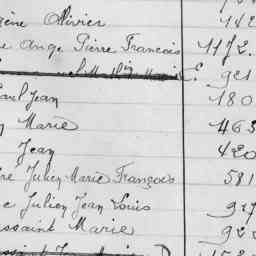 ène Olivier 142
e Ange Pierre François 1172.
921
Paul Jean 180
Marie 463
Jean 420
re Julien Marie François 581
c Julien Jean Louis 927
ssaint Marie 922